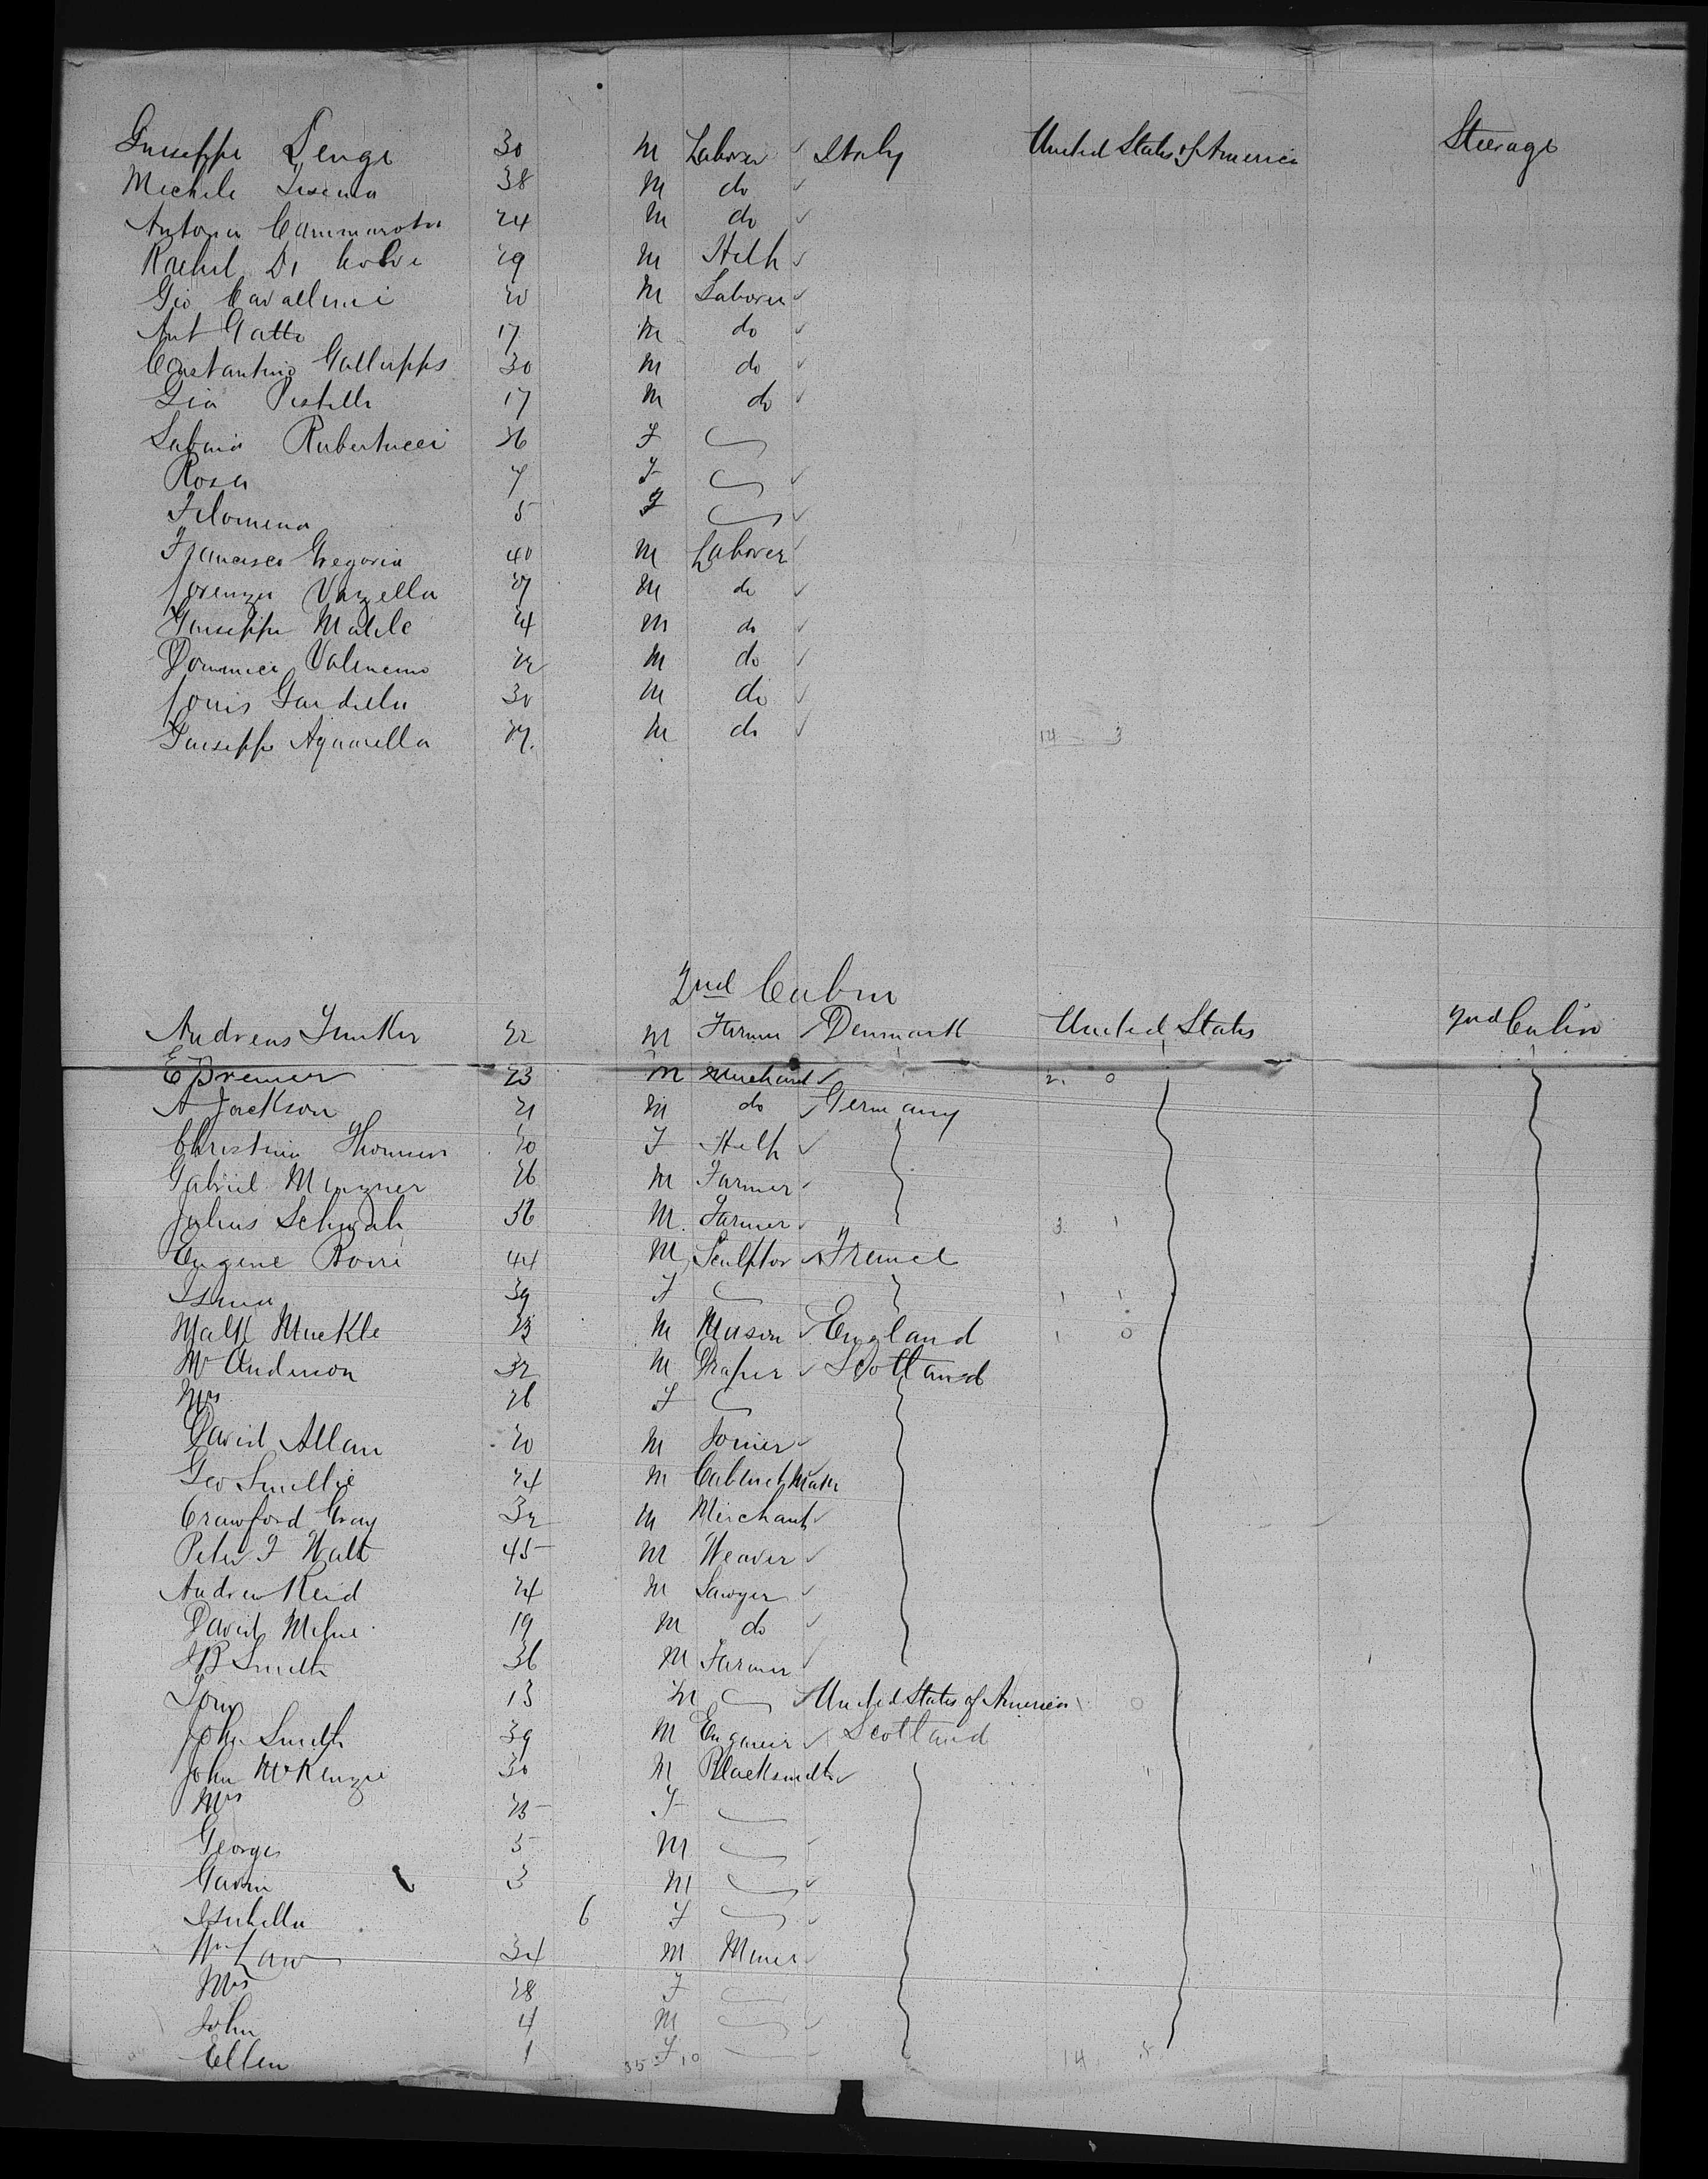 Guiseppe Lenge 30 M Laborer Italy United States of America Steerage
Michele 38 M do
Antonia Cammarota 24 M do
Di 29 M Help
Gio Cavallini 20 M Laborer
Ant Gatto 17 M do
Constantino Galluppo 30 M do
Gia Pistilli 17 M do
Rubertucci 36 F
Rosa 7 F
Filomena 5 F
Francesco Gregoria 40 M Laborer
Lorenzo Vazella 27 M do
Guiseppe 24 M do
Domenica 22 M do
Louis 30 M do
Guiseppe Aquarella 27 M do 14 3
2nd Cabin
Andreas Junker 22 M Farmer Denmark United States 2nd Cabin
E Bremer 23 M Merchant 2. 0
A Jackson 21 M do Germany
Christina 20 F Help
Gabriel Minzner 26 M Farmer
Julius Schwab 36 M. Farmer 3. 1
Eugene 44 M Sculptor France
39 F 1 1
Muckle 23 M Mason England 1 0
Anderson 32 M Draper Scotland
Mrs 26 F
David Allan 20 M Joiner
Geo Smellie 24 M Cabinet Maker
Crawford Gray 32 M Merchant
Peter F Watt 45 M Weaver
Andrew Reid 24 M Sawyer
David Milne 19 M do
JB Smith 36 M Farmer
13 M United States of America 1 0
John Smith 39 M Engineer Scotland
John McKenzie 30 M Blacksmith
Mrs 25 F
George 5 M
Gavin 3 M
Isabella 6 F
Wm Law 34 M Miner
Mrs 28 F
John 4 M
Ellen 1 F 35 10 14 5